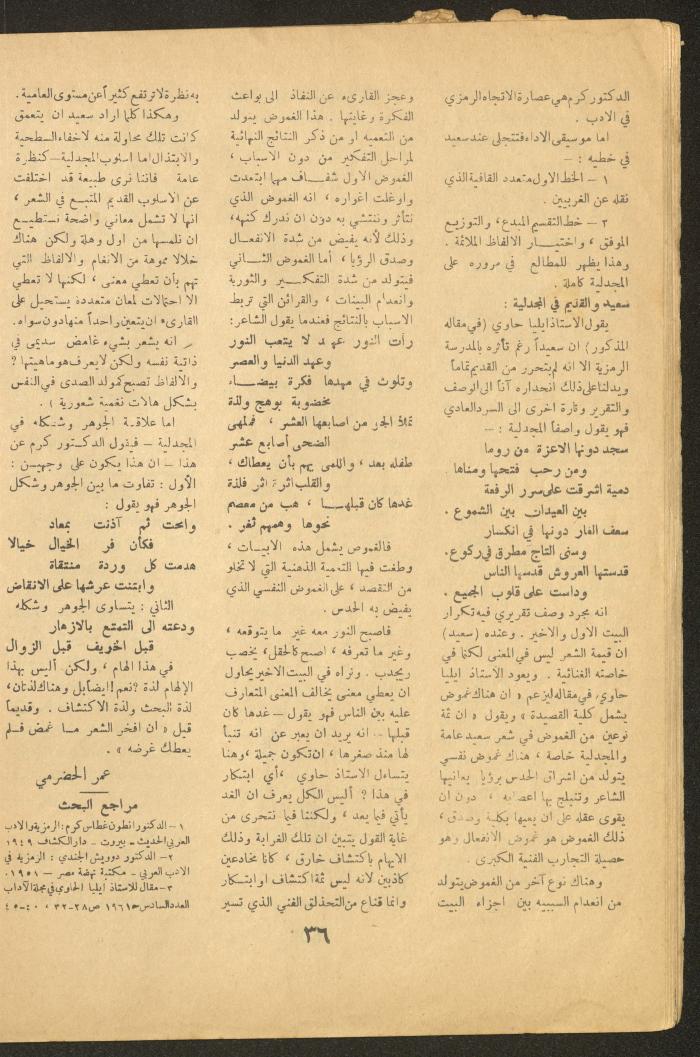 الدكتور كرم هي عصارة الاتجاه الرمزي
في الادب .
اما موسيقى الاداء فتتجلى عند سعيد
في خطبه : —
١ – الخط الاول متعدد القافية الذي
نقله عن الغربيين .
٢ – خط التقسيم المبدع، والتوزيع
الموفق ، واختيار الالفاظ الملائمة .
وهذا يظهر للمطالع في مروره على
المجدلية كاملة .
سعيد والقديم في المجدلية :
يقول الاستاذ ايليا حاوي (في مقاله
المذكور) ان سعيداً رغم تأثره بالمدرسة
الرمزية الا انه لم يتحرر من القديم تماماً
ويدلنا على ذلك انحداره آناً الى الوصف
والتقرير وتارة اخرى الى السرد العادي
فهو يقول واصفاً المجدلية : —
سجد دونها الاعزة من روما
ومن رحب فتحها ومناها .
دمية اشرقت على سرر الرفعة
بين العيدان بين الشموع .
سعف الغار دونها في انكسار
وسنى التاج مطرق في ركوع .
قدستها العروش قدسها الناس
وداست على قلوب الجميع .
انه مجرد وصف تقريري فيه تكرار
البيت الاول والاخير . وعنده (سعيد)
ان قيمة الشعر ليس في المعنى لكنها في
خاصته الغنائية . ويعود الاستاذ ايليا
حاوي في مقاله ليزعم « ان هناك غموض
يشمل كلية القصيدة » ويقول « ان ثمة
نوعين من الغموض في شعر سعيد عامة
والمجدلية خاصة ، هناك غموض نفسي
يتولد من اشراق الحدس برؤيا يعانيها
الشاعر وتنبلج بها اعصابه ، دون ان
يقوى عقله على ان يعيها بكلية وصدق ،
ذلك الغموض هو غموض الانفعال وهو
حصيلة التجارب الفنية الكبرى .
وهناك نوع آخر من الغموض يتولد
من انعدام السببيه بين اجزاء البيت
وعجز القارىء عن النفاذ الى بواعث
الفكرة وغايتها . هذا الغموض يتولد
من التعميه او من ذكر النتائج النهائية
لمراحل التفكير من دون الاسباب ،
الغموض الاول شفاف مهما ابتعدت
واوغلت اغواره ، انه الغموض الذي
نتأثر وننتشي به دون ان ندرك كنهه،
وذلك لأنه يفيض من شدة الانفعال
وصدق الرؤيا ، أما الغموض الثاني
فيتولد من شدة التفكير والتورية
وانعدام البينات ، والقرائن التي تربط
الاسباب بالنتائج فعندما يقول الشاعر:
رأت النور عهد لا يتعب النور
وعهد الدنيا والعصر
وتلوت في مهدها فكرة بيضاء
مخضوبة بوهج ولذة
تملأ الجو من اصابعها العشر ، فملهى
الضحى أصابع عشر
طفله بعد ، واللمى يهم بأن يعطاك ،
والقلب اثرة اثر فلذة
غدها كان قبلها ، هب من معصم
نحوها وهمهم ثغر .
فالغموض يشمل هذه الابيات ،
وطغت فيها التعمية الذهنية التي لا تخلو
من التقصد ، على الغموض النفسي الذي
يفيض به الحدس .
فاصبح النور معه غير ما يتوقعه ،
وغير ما تعرفه ، اصبح كالحقل، يخصب
ويجدب . ونراه في البيت الاخير يحاول
ان يعطي معنى يخالف المعنى المتعارف
عليه بين الناس فهو يقول – غدها كان
قبلها – انه يريد ان يعبر عن انه تنبأ
لها منذ صغرها ، ان تكون جميلة ، وهنا
يتساءل الاستاذ حاوي ، أي ابتكار
في هذا ؟ أليس الكل يعرف ان الغد
يأتي فيما بعد ، ولكننا فيما نتحرى من
غاية القول يتبين ان تلك الغرابة وذلك
الايهام باكتشاف خارق ، كانا مخادعين
كاذبين لانه ليس ثمة اكتشاف او ابتكار
وانما قناع من التحذلق الفني الذي تسير
به نظرة لا ترتفع كثيراً عن مستوى العامية .
وهكذا كلما اراد سعيد ان يتعمق
كانت تلك محاولة منه لاخفاء السطحية
والابتذال اما اسلوب المجدلية – كنظرة
عامة فاننا نرى طبيعة قد اختلفت
عن الاسلوب القديم المتبع في الشعر ،
انها لا تشمل معاني واضحة نستطيع
ان نلمسها من اول وهلة ولكن هناك
خلالا مموهة من الانغام والالفاظ التي
تهم بأن تعطي معنى ، لكنها لا تعطي
الا احتمالات لمعان متعددة يستحيل على
القارىء ان يتعين واحداً منها دون سواه.
انه يشعر بشيء غامض سديمي في
ذاتية نفسه ولكن لا يعرف هو ماهيتها ؟
والالفاظ تصبح كمولد الصدى في النفس
بشكل هالات نغمية شعورية ) .
اما علاقة الجوهر وشكله في
المجدلية – فيقول الدكتور كرم عن
هذا – ان هذا يكون على وجهين :
الأول : تفاوت ما بين الجوهر وشكل
الجوهر فهو يقول :
وامحت ثم آذنت بمعاد
فكأن فر الخيال خيالا
هدمت كل وردة منتقاة
وابتنت عرشها على الانقاض
الثاني : يتساوى الجوهر وشكله
ودعته الى التمتع بالازهار
قبل الخريف قبل الزوال
في هذا الهام ، ولكن أليس بهذا
الإلهام لذة ؟ نعم ! ايضاً بل وهناك لذتان،
لذة البحث ولذة الاكتشاف . وقديماً
قيل « ان افخر الشعر ما غمض فلم
يعطك غرضه » .
عمر الحضرمي
مراجع البحث
١ – الدكتور انطون غطاس كرم : الرمزية والادب
العربي الحديث – بيروت – دار الكشاف ١٩٤٩
٢ – الدكتور دوويش الجندي : الرمزية في
الادب العربي – مكتبة نهضة مصر – ١٩٥١.
٣ – مقال للاستاذ ايليا الحاوي في مجلة الآداب
العدد السادس ١٩٦١ ص ٢٨–٣٢ ، ٤٠–٤٥
٣٦